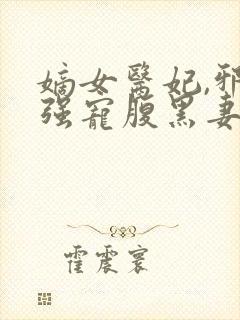 嫡女醫妃,邪
强寵腹黑妻
霍震寰